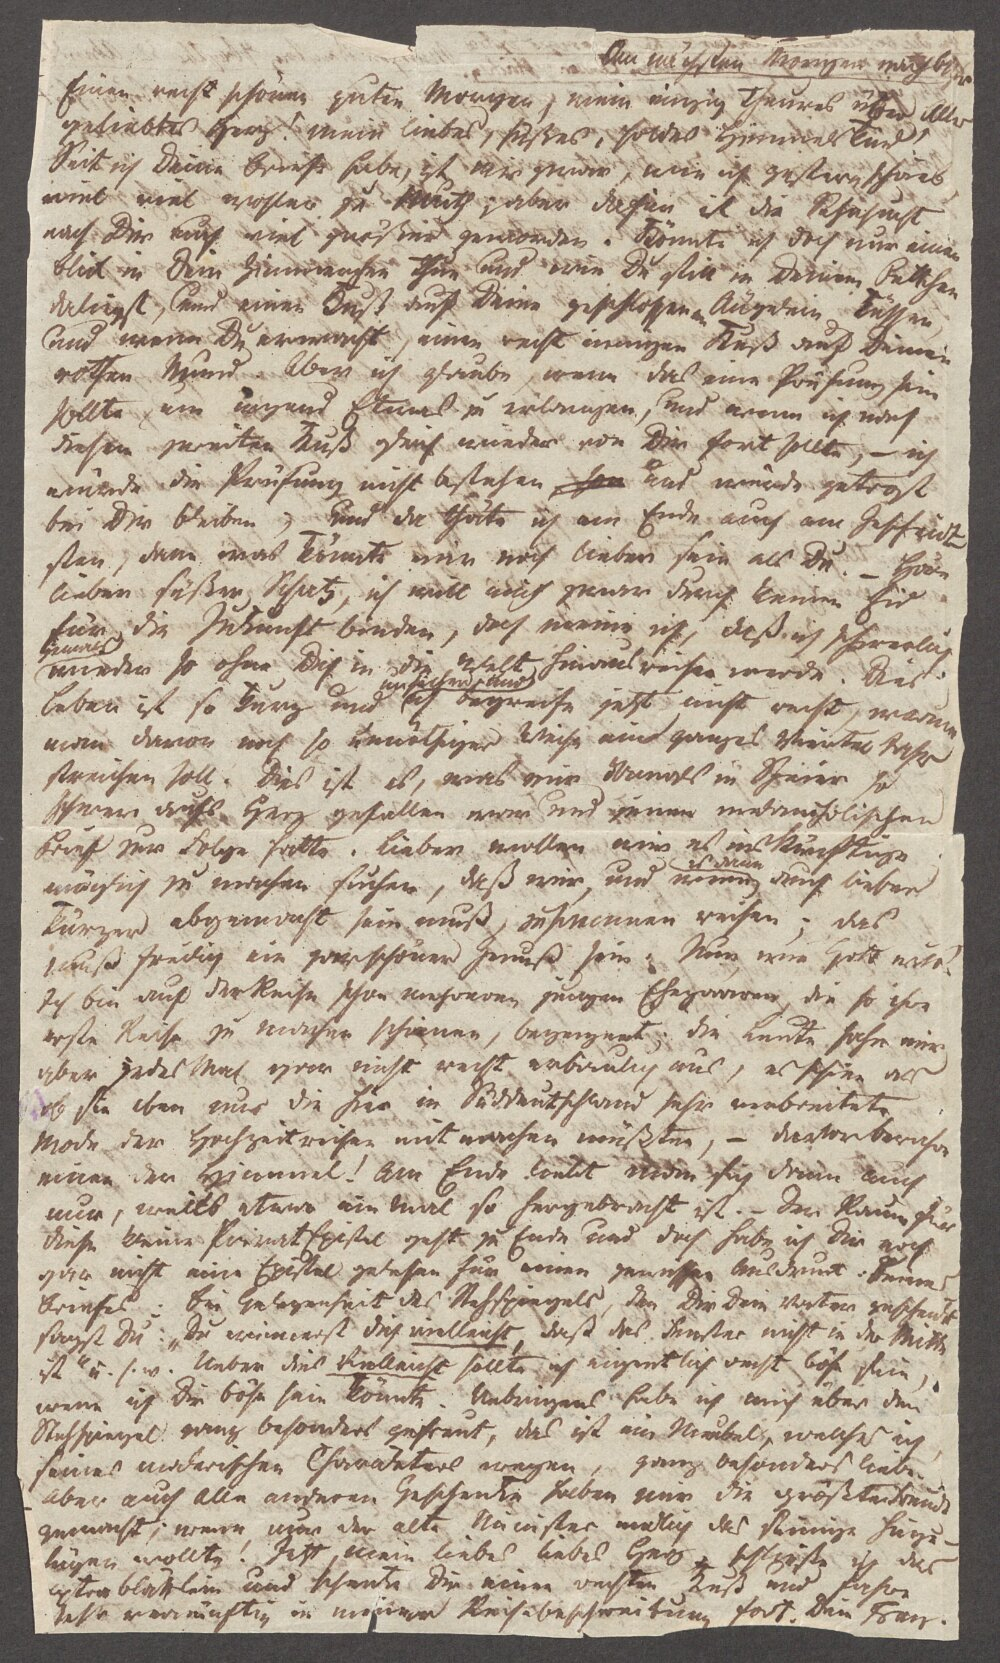 Am nächsten Morgen nach
Einen recht schönen guten Morgen, mein einzig Theures über Alles
geliebtes Herz! mein liebes, süßes, holdes Himmelskind!
Seit ich Deine Briefe habe, ist mir zwar, wie ich gestern schrieb,
viel viel wohler zu Muth, aber dafür ist die Sehnsucht
nach Dir auch viel größer geworden. Könnte ich doch nur einen
Blick in Dein Zimmerchen thun und wie Du still in Deinem Bettchen
daliegst, und einen Kuß auf Deine geschlossenen Äuglein küssen
und wenn Du erwachst, einen recht innigen Kuß auf Deinen
rothen Mund. Aber ich glaube, wenn das eine Prüfung sein
sollte, um irgend Etwas zu erlangen, und wenn ich nach
diesem zweiten Kuß gleich wieder von Dir fort sollte, – ich
würde die Prüfung nicht bestehen und würde getrost
bei Dir bleiben; und da thäte ich am Ende auch am Gescheidt-
sten, denn was könnte mir noch lieber sein als Du. –
lieber süßer Schatz, ich will mich zwar durch keinen Eid
für die Zukunft binden, doch meine ich, daß ich schwerlich
jemals
wieder so ohne Dich in die Welt hinaus reisen werde. Das
Leben ist so kurz und ich begreife jetzt nicht recht, warum
man davon noch so unnöthiger Weise ein ganzes Viertel Jahr
streichen soll. Dies ist es, was mir damals in Speier so
schwer aufs Herz gefallen war und jenen melancholischen
Brief zur Folge hatte. Lieber wollen wir es ins Künftige
es dann
möglich zu machen suchen, daß wir, und wenns auch lieber
kürzer abgemacht sein muß, zusammen reisen; das
muß freilich ein gar schöner Genuß sein. Nun, wie Gott will!
Ich bin auf der Reise schon mehreren jungen Ehepaaren, die so ihre
erste Reise zu machen schienen, begegnet; die Leute sahn mir
aber jedes Mal gar nicht recht erbaulich aus, es schien als
ob sie eben nur die hier in Süddeutschland sehr verbreitete
Mode der Hochzeitreisen mit machen müßten, – davor bewahre
einen der Himmel! Am Ende liebt man sich dann auch
nur, weils etwa ein Mal so hergebracht ist. – Der Raum für
diese kleine PrivatEpistel geht zu Ende und doch habe ich Dir noch
gar nicht eine Epistel gelesen für einen gewissen Ausdruck Deines
Briefes: Bei Gelegenheit des Stehspiegels, den Dir Dein Vater geschenkt
sagst Du: „Du erinnerst Dich vielleicht, daß das Fenster nicht in der Mitte
ist“ u. s. w. Ueber dies Vielleicht sollte ich eigentlich recht böse sein,
wenn ich Dir böse sein könnte. Uebrigens habe ich mich über den
Stehspiegel ganz besonders gefreut, das ist ein Meubel, welches ich
seines malerischen Charakters wegen, ganz besonders liebe.
Aber auch alle anderen Geschenke haben mir die größte Freude
gemacht; wenn nur der alte Minister endlich das seinige hinzu-
fügen wollte! Jetzt, mein liebes liebes Herz, schließe ich das
Extrablättlein und schenke Dir einen rechten Kuß und fahre
sehr vernünftig in meiner Reisebeschreibung fort. Dein Franz.